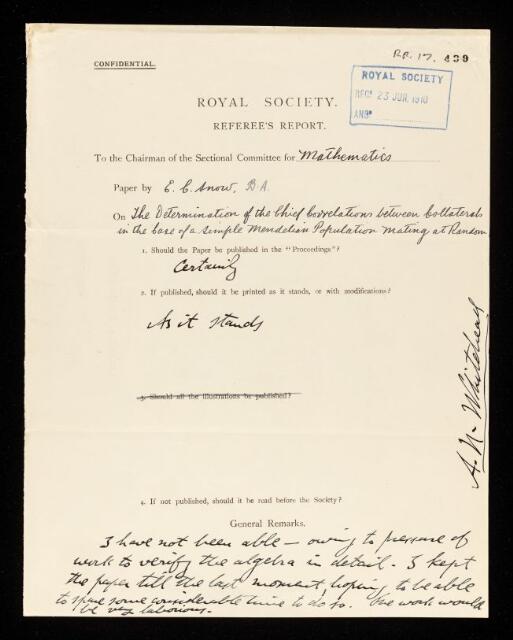 RR. 17. 439
CONFIDENTIAL.
ROYAL SOCIETY
RECD 23 JUN. 1910
ANSD
ROYAL SOCIETY.
REFEREE'S REPORT.
To the Chairman of the Sectional Committee for Mathematics
Paper by E. C. Snow, B A.
On The Determination of the Chief Correlations between Collaterals
in the Case of a Simple Mendelian Population Mating at Random
1. Should the Paper be published in the "Proceedings"?
Certainly
2. If published, should it be printed as it stands, or with modifications?
As it stands
3. Should all the illustrations be published?
A. N. Whitehead
4. If not published, should it be read before the Society?
General Remarks.
I have not been able — owing to pressure of
work to verify the algebra in detail. I kept
the paper till the last moment, hoping to be able
to spare some considerable time to do so. The work would
be very laborious.